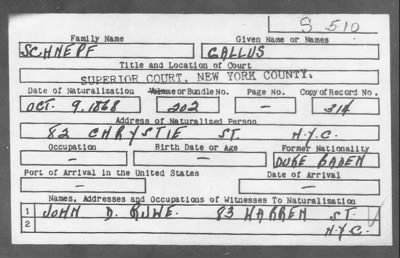 S 510
Family Name Given Name or Names
SCHNEPF GALLUS
Title and Location of Court
SUPERIOR COURT, NEW YORK COUNTY.
Date of Naturalization Volume or Bundle No. Page No. Copy of Record No.
OCT. 9. 1868 202 — 314
Address of Naturalized Person
82 CHRYSTIE ST. N.Y.C.
Occupation Birth Date or Age Former Nationality
— — DUKE BADEN
Port of Arrival in the United States Date of Arrival
— —
Names, Addresses and Occupations of Witnesses To Naturalization
1 JOHN D. RUWE. 83 WARREN ST.
2 N.Y.C.